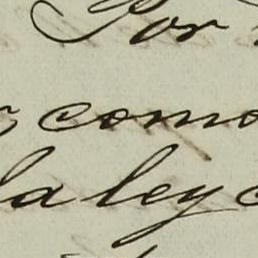 Por
como
la ley